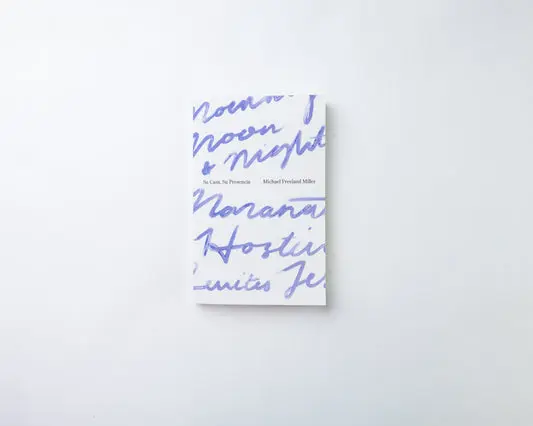 Morning
Noon
& Night
Su Casa, Su Presencia Michael Freeland Miller
Maranat
Hostin
Levites Jes